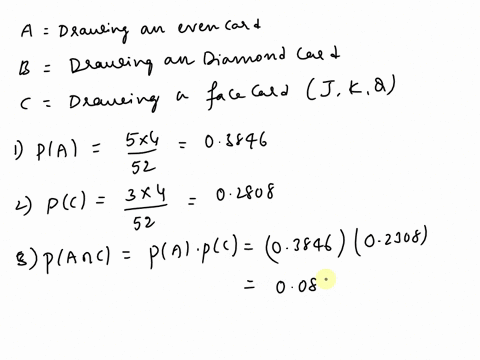 A = Drawing an even card
B = Drawing an Diamond Card
C = Drawing a face Card (J, K, Q)
1) P(A) = 5×4/52 = 0.3846
2) P(C) = 3×4/52 = 0.2808
3) P(A∩C) = P(A)·P(C) = (0.3846)(0.2308)
= 0.08